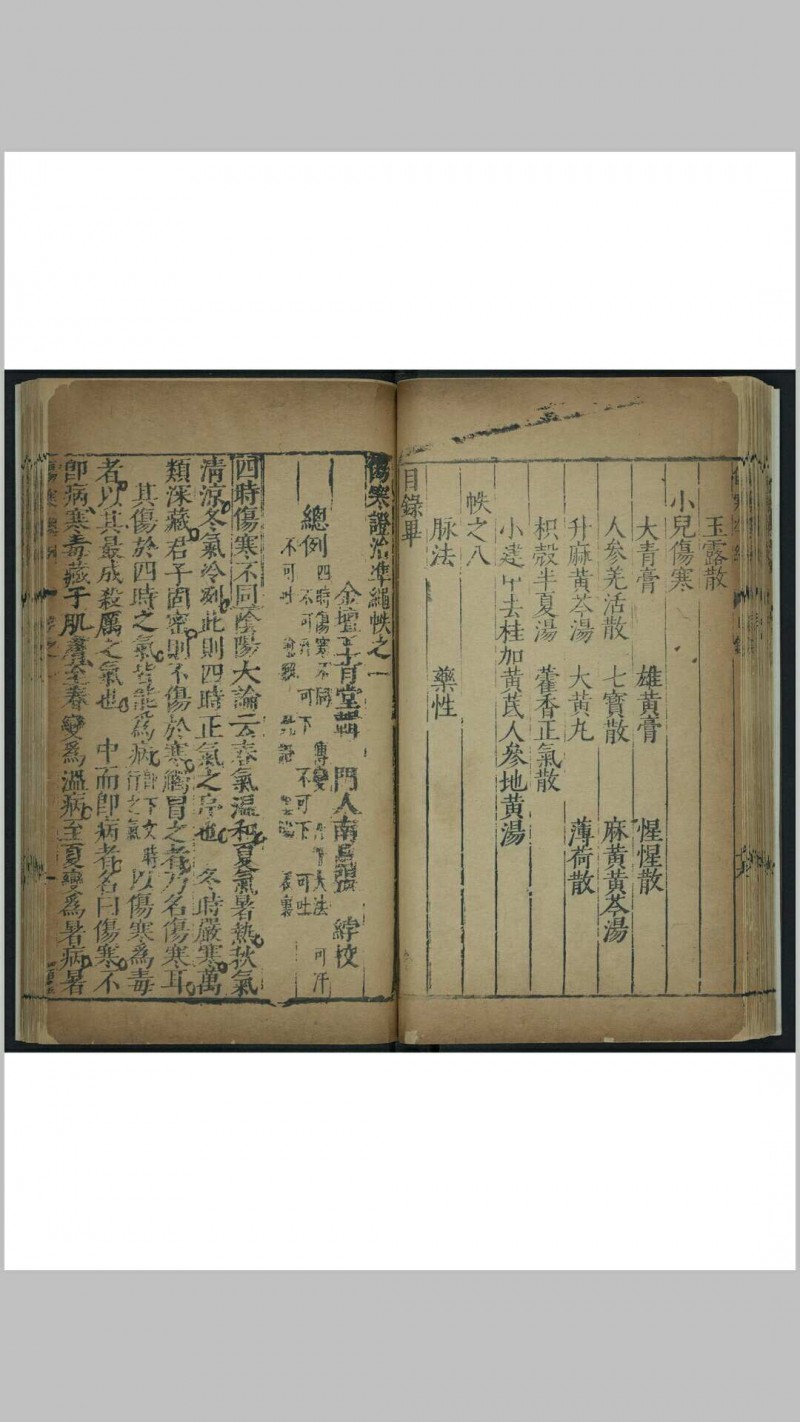 玉露散
小兒傷寒
大青膏 雄黃膏 惺惺散
人參羌活散 七寶散 麻黃黃芩湯
升麻黃芩湯 大黃丸 薄荷散
枳殼半夏湯 藿香正氣散
小建中去桂加黃芪人參地黃湯
帙之八
脉法 藥性
目錄畢
傷寒證治準繩帙之一
金壇王肯堂輯 門人南昌張 縡校
總例 四時傷寒不同 傳變 大法 可汗
不可汗 可下 不可下 可吐
不可吐 表裏
四時傷寒不同 陰陽大論云春氣溫和夏氣暑熱秋氣
清涼冬氣冷冽此則四時正氣之序也 冬時嚴寒萬
類深藏君子固密則不傷於寒觸冒之者乃名傷寒耳
其傷於四時之氣皆能爲病 下文時行之氣 以傷寒爲毒
者以其最成殺厲之氣也 中而即病者名曰傷寒不
即病寒毒藏于肌膚至春變爲溫病至夏變爲暑病暑